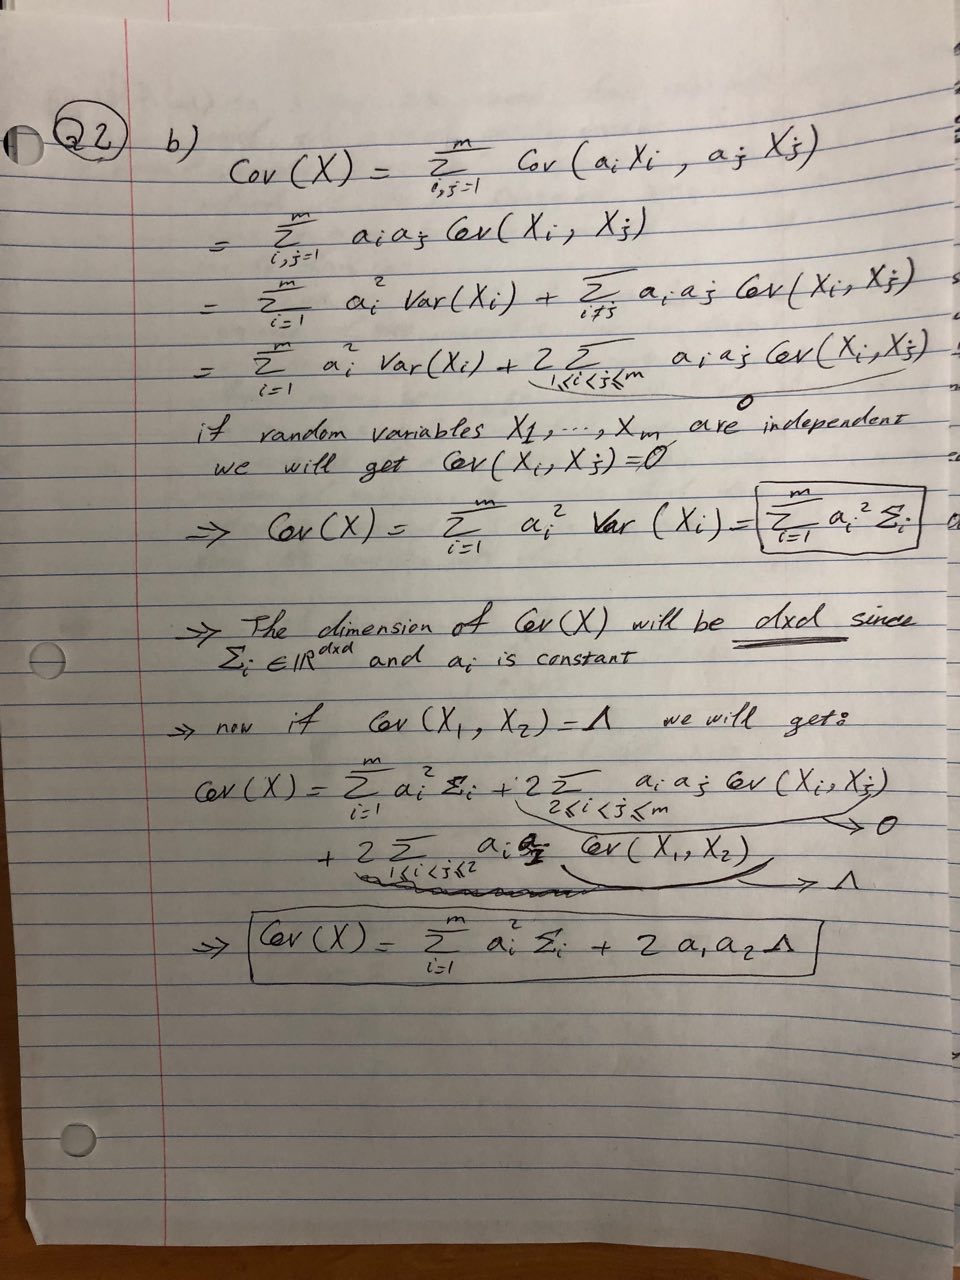 Q2 b)
Cov(X) = Σ_{i,j=1}^{m} Cov(a_i X_i, a_j X_j)
= Σ_{i,j=1}^{m} a_i a_j Cov(X_i, X_j)
= Σ_{i=1}^{m} a_i^2 Var(X_i) + Σ_{i≠j} a_i a_j Cov(X_i, X_j)
= Σ_{i=1}^{m} a_i^2 Var(X_i) + 2 Σ_{1≤i<j≤m} a_i a_j Cov(X_i, X_j)
0
if random variables X_1, ..., X_m are independent
we will get Cov(X_i, X_j) = 0
⇒ Cov(X) = Σ_{i=1}^{m} a_i^2 Var(X_i) = Σ_{i=1}^{m} a_i^2 Σ_i
⇒ The dimension of Cov(X) will be dxd since
Σ_i ∈ ℝ^{dxd} and a_i is constant
⇒ now if Cov(X_1, X_2) = Λ we will get:
Cov(X) = Σ_{i=1}^{m} a_i^2 Σ_i + 2 Σ_{2≤i<j≤m} a_i a_j Cov(X_i, X_j) → 0
+ 2 Σ_{1≤i<j≤2} a_i a_2 Cov(X_1, X_2) → Λ
⇒ Cov(X) = Σ_{i=1}^{m} a_i^2 Σ_i + 2 a_1 a_2 Λ